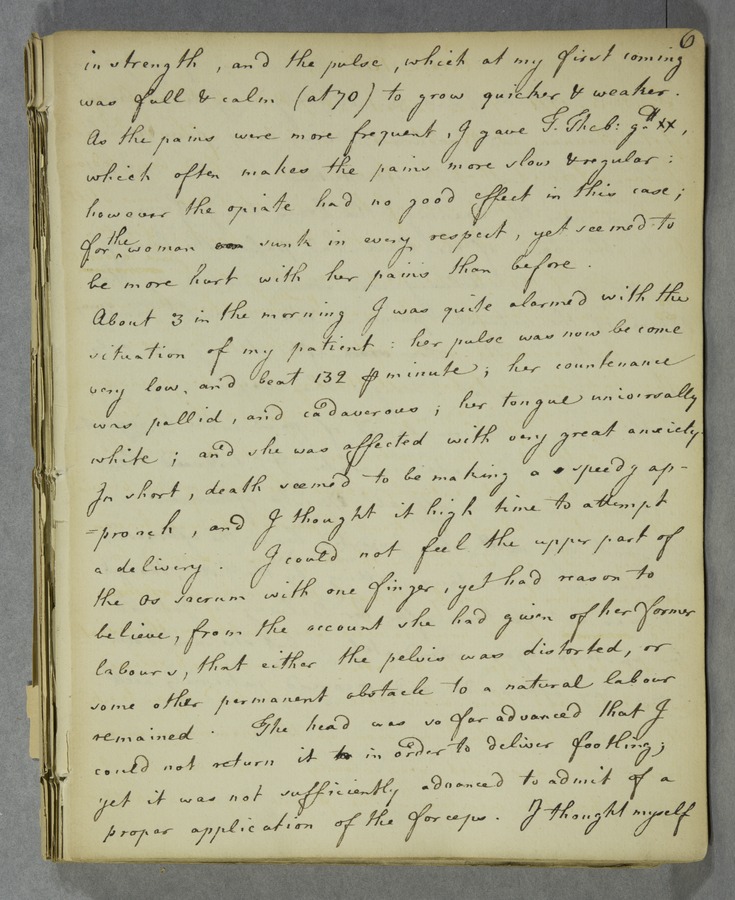 6
in strength, and the pulse, which at my first coming
was full & calm (at 70) to grow quicker & weaker.
As the pains were more frequent, I gave T. Theb: gtt xx,
which often makes the pains more slow & regular:
however the opiate had no good effect in this case;
for the woman sunk in every respect, yet seemed to
be more hurt with her pains than before.
About 3 in the morning I was quite alarmed with the
situation of my patient: her pulse was now become
very low, and beat 132 ⅌ minute; her countenance
was pallid, and cadaverous; her tongue universally
white; and she was affected with very great anxiety.
In short, death seemed to be making a speedy ap-
=proach, and I thought it high time to attempt
a delivery. I could not feel the upper part of
the os sacrum with one finger, yet had reason to
believe, from the account she had given of her former
labours, that either the pelvis was distorted, or
some other permanent obstacle to a natural labour
remained. The head was so far advanced that I
could not return it in order to deliver footling;
yet it was not sufficiently advanced to admit of a
proper application of the forceps. I thought myself